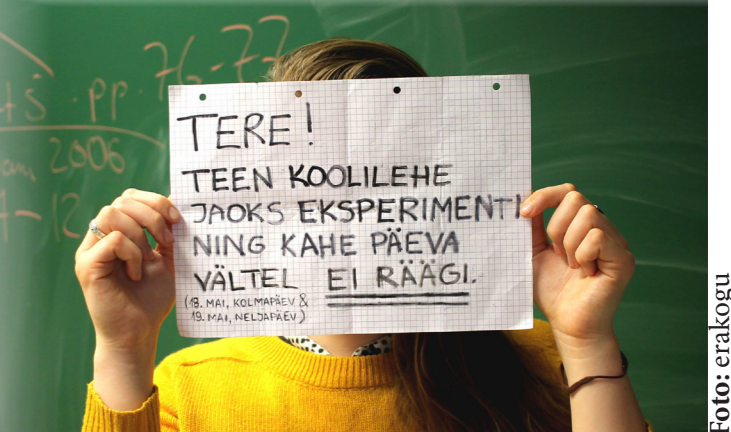 76-77
pp.
2006
TERE!
TEEN KOOLILEHE
JAOKS EKSPERIMENTI
NING KAHE PÄEVA
VÄLTEL EI RÄÄGI.
(18. MAI, KOLMAPÄEV &
19. MAI, NELJAPÄEV)
Foto: erakogu